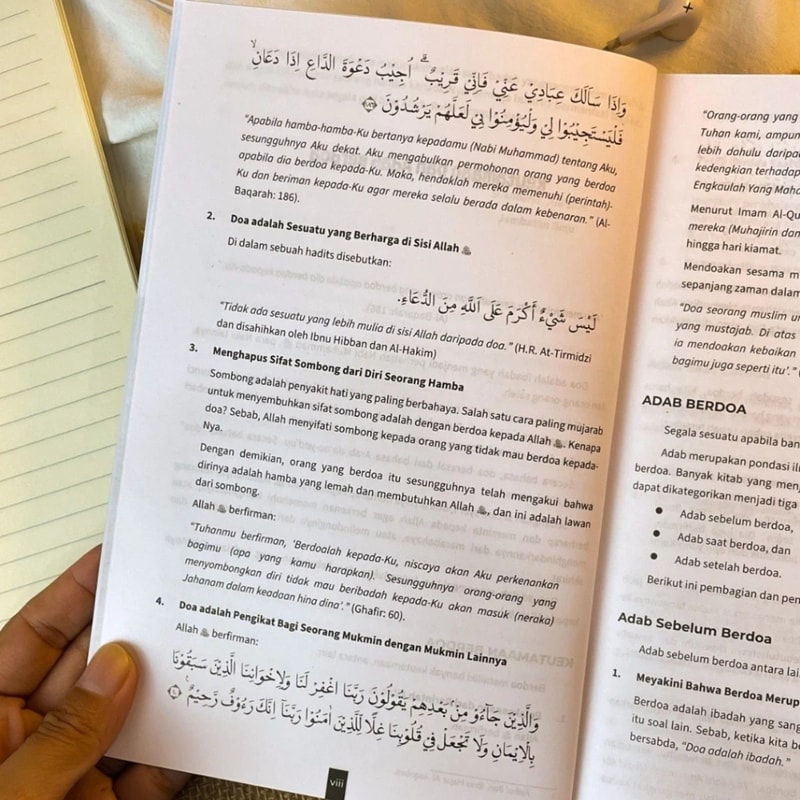 وَاِذَا سَاَلَكَ عِبَادِيْ عَنِّيْ فَاِنِّيْ قَرِيْبٌ ۗ اُجِيْبُ دَعْوَةَ الدَّاعِ اِذَا دَعَانِۙ
فَلْيَسْتَجِيْبُوْا لِيْ وَلْيُؤْمِنُوْا بِيْ لَعَلَّهُمْ يَرْشُدُوْنَ ﴿١٨٦﴾
“Apabila hamba-hamba-Ku bertanya kepadamu (Nabi Muhammad) tentang Aku,
sesungguhnya Aku dekat. Aku mengabulkan permohonan orang yang berdoa
apabila dia berdoa kepada-Ku. Maka, hendaklah mereka memenuhi (perintah)-
Ku dan beriman kepada-Ku agar mereka selalu berada dalam kebenaran.” (Al-
Baqarah: 186).
2. Doa adalah Sesuatu yang Berharga di Sisi Allah ﷻ
Di dalam sebuah hadits disebutkan:
لَيْسَ شَيْءٌ أَكْرَمَ عَلَى اللَّهِ مِنَ الدُّعَاءِ.
“Tidak ada sesuatu yang lebih mulia di sisi Allah daripada doa.” (H.R. At-Tirmidzi
dan disahihkan oleh Ibnu Hibban dan Al-Hakim)
3. Menghapus Sifat Sombong dari Diri Seorang Hamba
Sombong adalah penyakit hati yang paling berbahaya. Salah satu cara paling mujarab
untuk menyembuhkan sifat sombong adalah dengan berdoa kepada Allah ﷻ. Kenapa
doa? Sebab, Allah menyifati sombong kepada orang yang tidak mau berdoa kepada-
Nya.
Dengan demikian, orang yang berdoa itu sesungguhnya telah mengakui bahwa
dirinya adalah hamba yang lemah dan membutuhkan Allah ﷻ, dan ini adalah lawan
dari sombong.
Allah ﷻ berfirman:
“Tuhanmu berfirman, ‘Berdoalah kepada-Ku, niscaya akan Aku perkenankan
bagimu (apa yang kamu harapkan). Sesungguhnya orang-orang yang
menyombongkan diri tidak mau beribadah kepada-Ku akan masuk (neraka)
Jahanam dalam keadaan hina dina’.” (Ghafir: 60).
4. Doa adalah Pengikat Bagi Seorang Mukmin dengan Mukmin Lainnya
Allah ﷻ berfirman:
وَالَّذِيْنَ جَاۤءُوْ مِنْۢ بَعْدِهِمْ يَقُوْلُوْنَ رَبَّنَا اغْفِرْ لَنَا وَلِاِخْوَانِنَا الَّذِيْنَ سَبَقُوْنَا
بِالْاِيْمَانِ وَلَا تَجْعَلْ فِيْ قُلُوْبِنَا غِلًّا لِّلَّذِيْنَ اٰمَنُوْا رَبَّنَآ اِنَّكَ رَءُوْفٌ رَّحِيْمٌ ࣖ ﴿١٠﴾
viii
“Orang-orang yang
Tuhan kami, ampun
lebih dahulu daripa
kedengkian terhadap
Engkaulah Yang Maha
Menurut Imam Al-Qu
mereka (Muhajirin dan
hingga hari kiamat.
Mendoakan sesama m
sepanjang zaman dalam
“Doa seorang muslim un
yang mustajab. Di atas
ia mendoakan kebaikan
bagimu juga seperti itu’.”
ADAB BERDOA
Segala sesuatu apabila ban
Adab merupakan pondasi ilm
berdoa. Banyak kitab yang men
dapat dikategorikan menjadi tiga
• Adab sebelum berdoa,
• Adab saat berdoa, dan
• Adab setelah berdoa.
Berikut ini pembagian dan pen
Adab Sebelum Berdoa
Adab sebelum berdoa antara lai
1. Meyakini Bahwa Berdoa Merup
Berdoa adalah ibadah yang sang
itu soal lain. Sebab, ketika kita be
bersabda, “Doa adalah ibadah.”